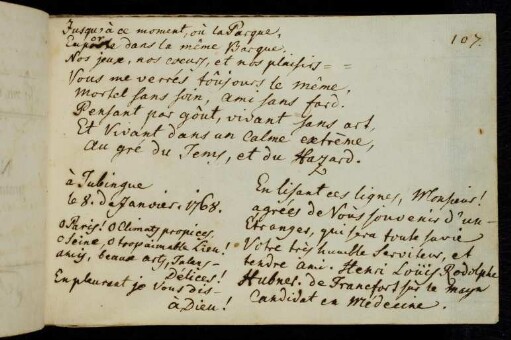 107.
Jusqu'à ce moment, où la Parque,
Emporte dans la même Barque
Nos jeux, nos coeurs, et nos plaisis=
Vous me verrés toûjours le même,
Mortel sans soin, ami sans fard.
Pensant par goût, vivant sans art,
Et vivant dans un calme extrême,
au gré du Tems, et du Hazard.
à Tubingue
le 8. de Janvier. 1768.
O Paris! O Climats propices,
o Seine, o trop aimable Lieu!
amis, beaux arts, Talens
Délices!
En pleurant je Vous dis
à Dieu!
En lisant ces lignes, Monsieur!
agrées de Vous souvenir d'un
Etranger, qui sera toute sa vie
Votre très humble Serviteur, et
tendre ami. Henri Loüis Rodolphe
Hubner. de Francfort sur le Mayn
Candidat en Médecine.